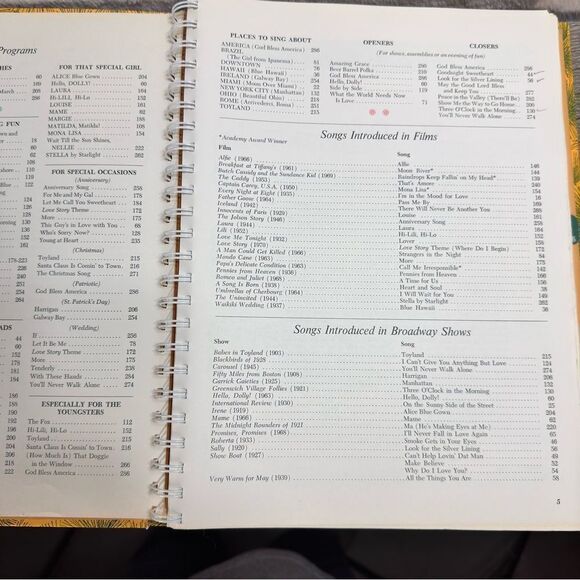 Programs
60
189
268
FOR THAT SPECIAL GIRL
ALICE Blue Gown 204
Hello, DOLLY! 60
LAURA 164
HI-LILI, Hi-Lo 152
LOUISE 161
MAME 62
MARGIE 188
MATILDA, Matilda! 102
MONA LISA 154
Wait Till the Sun Shines,
NELLIE 222
STELLA by Starlight 262
FOR SPECIAL OCCASIONS
(Anniversary)
Anniversary Song 258
For Me and My Gal 178
Let Me Call You Sweetheart 184
Love Story Theme 172
More 175
This Guy's in Love with You 68
Who's Sorry Now? 128
Young at Heart 235
(Christmas)
Toyland 215
Santa Claus Is Comin' to Town 216
The Christmas Song 271
(Patriotic)
God Bless America 286
(St. Patrick's Day)
Harrigan 206
Galway Bay 254
(Wedding)
If 256
Let It Be Me 78
Love Story Theme 172
More 175
Tenderly 238
With These Hands 284
You'll Never Walk Alone 274
ESPECIALLY FOR THE
YOUNGSTERS
The Fox 112
Hi-Lili, Hi-Lo 152
Toyland 215
Santa Claus Is Comin' to Town 216
(How Much Is) That Doggie
in the Window 266
God Bless America 286
PLACES TO SING ABOUT
AMERICA (God Bless America) 286
BRAZIL
(The Girl from Ipanema) 81
DOWNTOWN 51
HAWAII (Blue Hawaii) 36
IRELAND (Galway Bay) 254
MIAMI (Moon Over Miami) 22
NEW YORK CITY (Manhattan) 132
OHIO (Beautiful Ohio) 218
ROME (Arrivederci, Roma) 251
TOYLAND 215
OPENERS
(For shows, assemblies or an evening of fun)
Amazing Grace
Beer Barrel Polka 210
God Bless America 286
Hello, Dolly! 60
Side by Side 119
What the World Needs Now
Is Love 71
CLOSERS
God Bless America 286
Goodnight Sweetheart
Look for the Silver Lining 56
May the Good Lord Bless
and Keep You 277
Peace in the Valley (There'll Be) 282
Show Me the Way to Go Home 200
Three O'Clock in the Morning 130
You'll Never Walk Alone 274
Songs Introduced in Films
*Academy Award Winner
Film
Song
Alfie (1966) Alfie 146
Breakfast at Tiffany's (1961) Moon River* 144
Butch Cassidy and the Sundance Kid (1969) Raindrops Keep Fallin' on My Head* 139
The Caddy (1953) That's Amore 240
Captain Carey, U.S.A. (1950) Mona Lisa* 154
Every Night at Eight (1935) I'm in the Mood for Love 16
Father Goose (1964) Pass Me By 169
Iceland (1942) There Will Never Be Another You 268
Innocents of Paris (1929) Louise 161
The Jolson Story (1946) Anniversary Song 258
Laura (1944) Laura 164
Lili (1952) Hi-Lili, Hi-Lo 152
Love Me Tonight (1932) Lover 158
Love Story (1970) Love Story Theme (Where Do I Begin) 172
A Man Could Get Killed (1966) Strangers in the Night 84
Mondo Cane (1963) More 175
Papa's Delicate Condition (1963) Call Me Irresponsible* 142
Pennies from Heaven (1936) Pennies from Heaven 166
Romeo and Juliet (1968) A Time for Us 136
A Song Is Born (1938) Heart and Soul 38
Umbrellas of Cherbourg (1964) I Will Wait for You 149
The Uninvited (1944) Stella by Starlight 262
Waikiki Wedding (1937) Blue Hawaii 36
Songs Introduced in Broadway Shows
Show
Song
Babes in Toyland (1903) Toyland 215
Blackbirds of 1928 I Can't Give You Anything But Love 124
Carousel (1945) You'll Never Walk Alone 274
Fifty Miles from Boston (1908) Harrigan 206
Garrick Gaieties (1925) Manhattan 132
Greenwich Village Follies (1921) Three O'Clock in the Morning 130
Hello, Dolly! (1963) Hello, Dolly! 60
International Review (1930) On the Sunny Side of the Street 25
Irene (1919) Alice Blue Gown 204
Mame (1966) Mame 62
The Midnight Rounders of 1921 Ma (He's Making Eyes at Me) 220
Promises, Promises (1968) I'll Never Fall in Love Again 65
Roberta (1933) Smoke Gets in Your Eyes 46
Sally (1920) Look for the Silver Lining 56
Show Boat (1927) Can't Help Lovin' Dat Man 49
Make Believe 52
Why Do I Love You? 54
Very Warm for May (1939) All the Things You Are 58
5